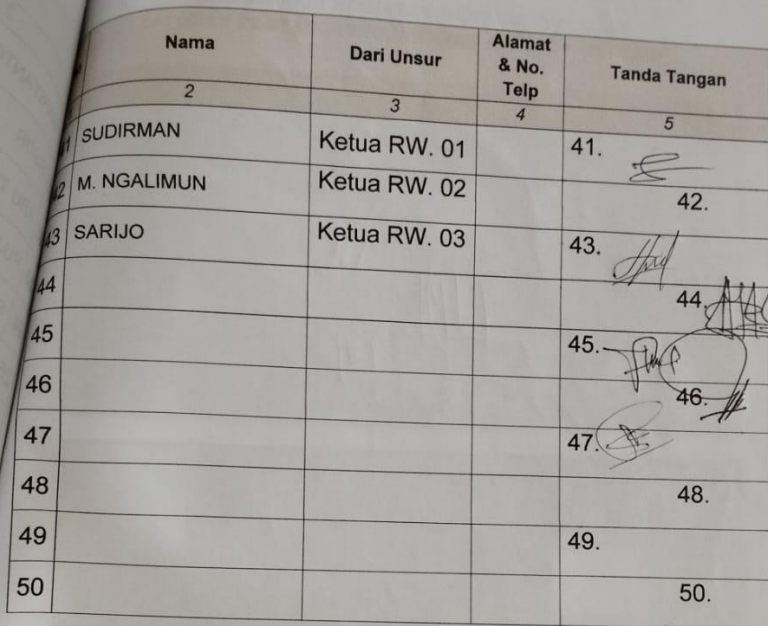 Nama Dari Unsur Alamat & No. Telp Tanda Tangan
2 3 4 5
41 SUDIRMAN Ketua RW. 01 41.
42 M. NGALIMUN Ketua RW. 02 42.
43 SARIJO Ketua RW. 03 43.
44 44.
45 45.
46 46.
47 47.
48 48.
49 49.
50 50.